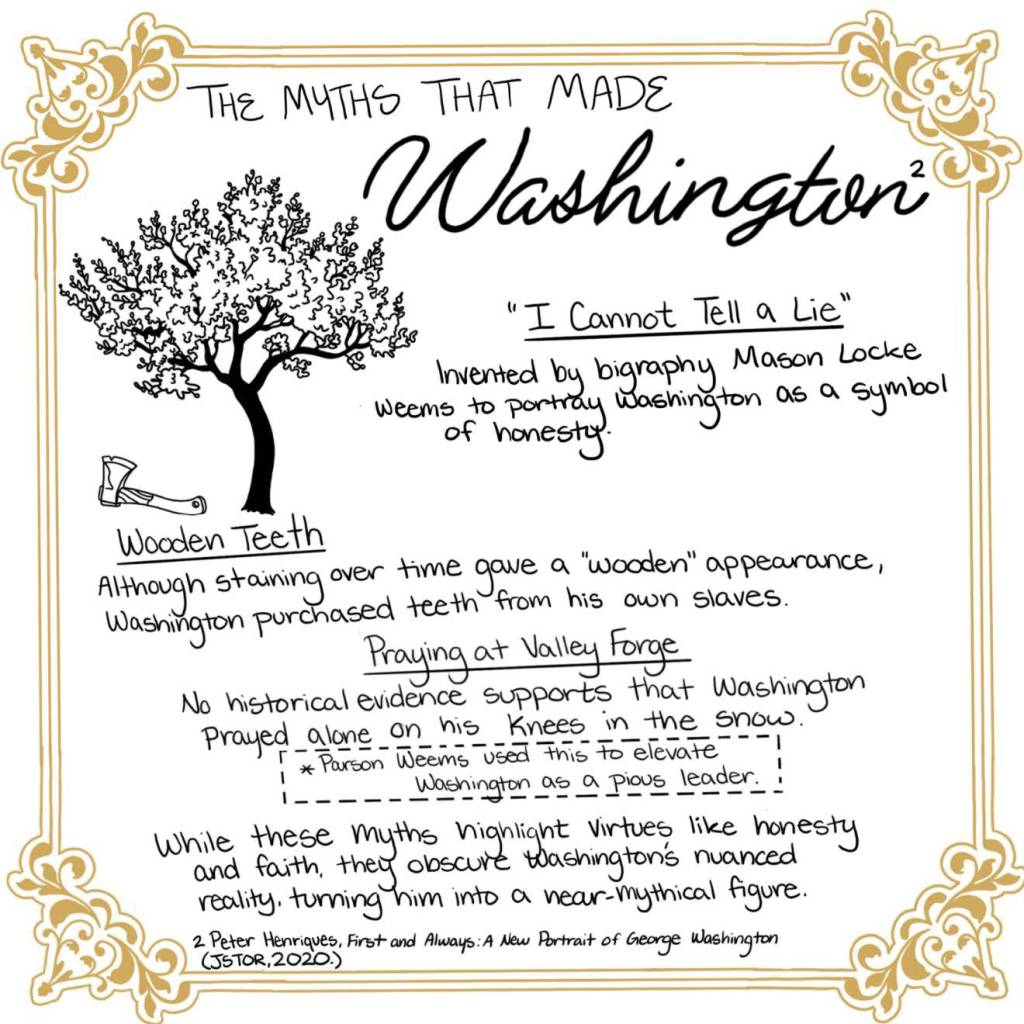 THE MYTHS THAT MADE
Washington²
"I Cannot Tell a Lie"
Invented by bigraphy Mason Locke
Weems to portray Washington as a symbol
of honesty.
Wooden Teeth
Although staining over time gave a "wooden" appearance,
Washington purchased teeth from his own slaves.
Praying at Valley Forge
No historical evidence supports that Washington
Prayed alone on his Knees in the snow.
* Parson Weems used this to elevate
Washington as a pious leader.
While these myths highlight virtues like honesty
and faith, they obscure Washington's nuanced
reality, turning him into a near-mythical figure.
2 Peter Henriques, First and Always: A New Portrait of George Washington
(JSTOR, 2020.)